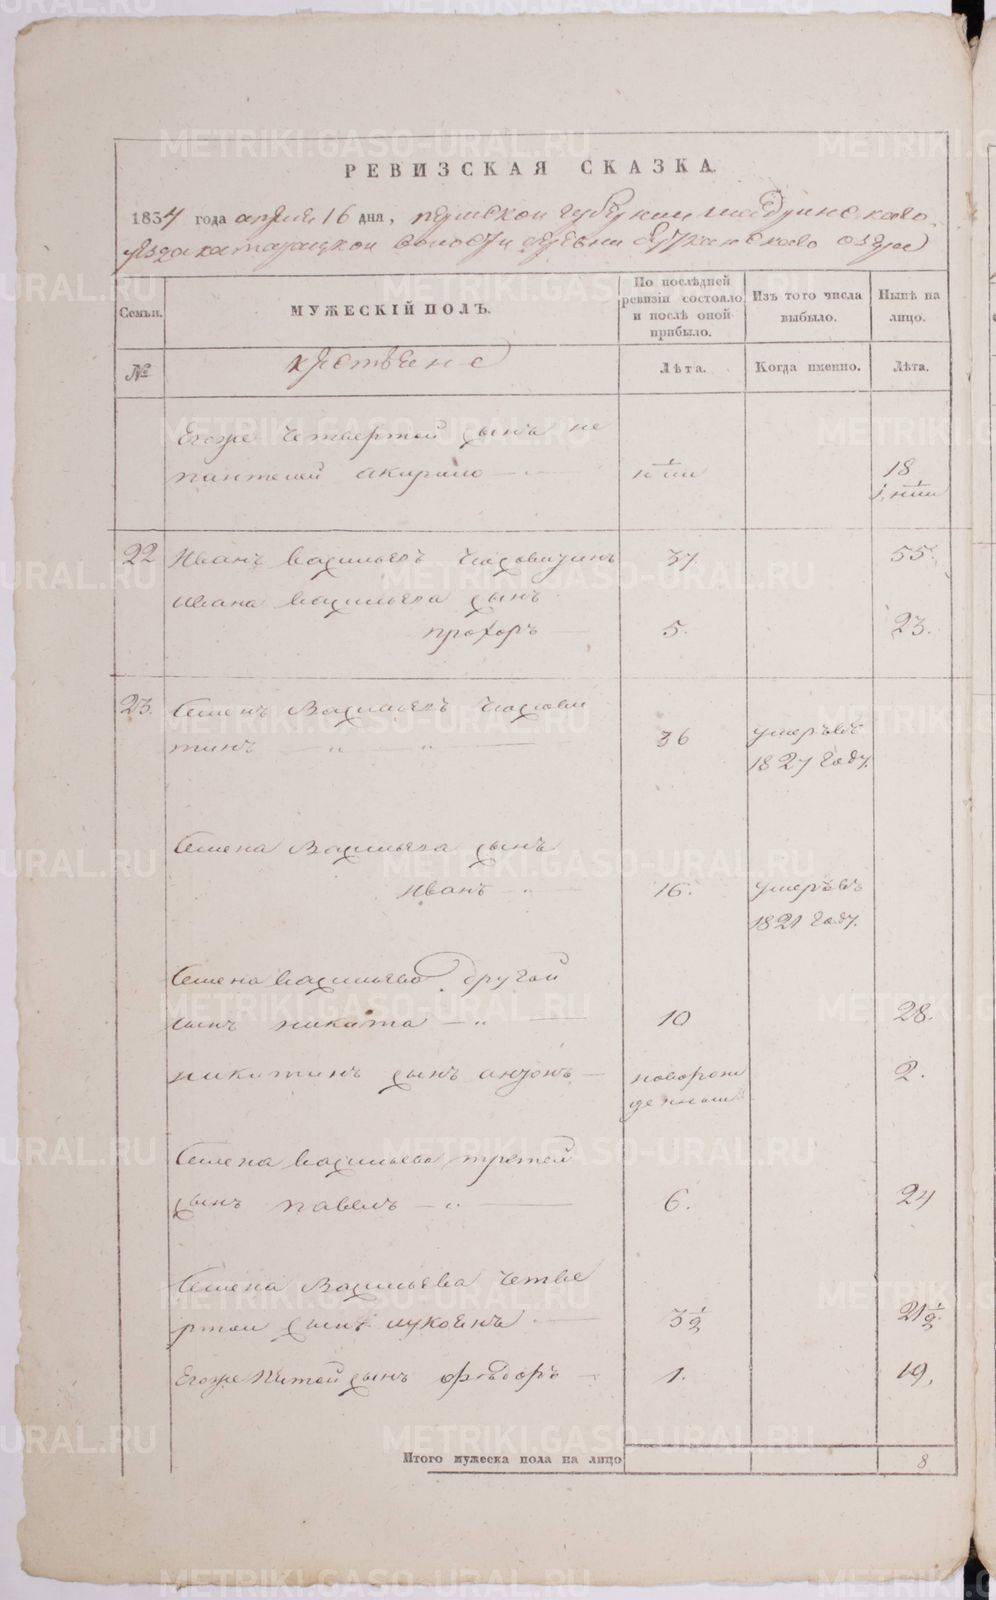 РЕВИЗСКАЯ СКАЗКА.
1834 года апреля 16 дня, пермской губернии шадринскаво
уезда катайской волости деревни озера
Семьи.
МУЖЕСКІЙ ПОЛЪ.
По послѣдней ревизіи состояло и послѣ оной прибыло.
Изъ того числа выбыло.
Нынѣ на лицо.
№
крестьяне
Лѣта.
Когда именно.
Лѣта.
Егоже Четвертой сынъ не
пантелей акирило 18
22 Иванъ Васильевъ 37 55.
Ивана Васильева сынъ
прохоръ 5. 23.
23. Семенъ Васильевъ
тинъ 36 умеръ въ
1827 году.
Семена Васильева сынъ
Иванъ 16. умеръ въ
1821 году.
Семена Васильева другой
сынъ никита 10 28.
никитинъ сынъ антонъ новорож 2.
денный
Семена Васильева третей
сынъ павелъ 6. 24
Семена Васильева четве
ртой сынъ 3 1/2 21 1/2
Егоже Пятой сынъ федоръ 1. 19.
Итого мужеска пола на лицо 8
METRIKI.GASO-URAL.RU